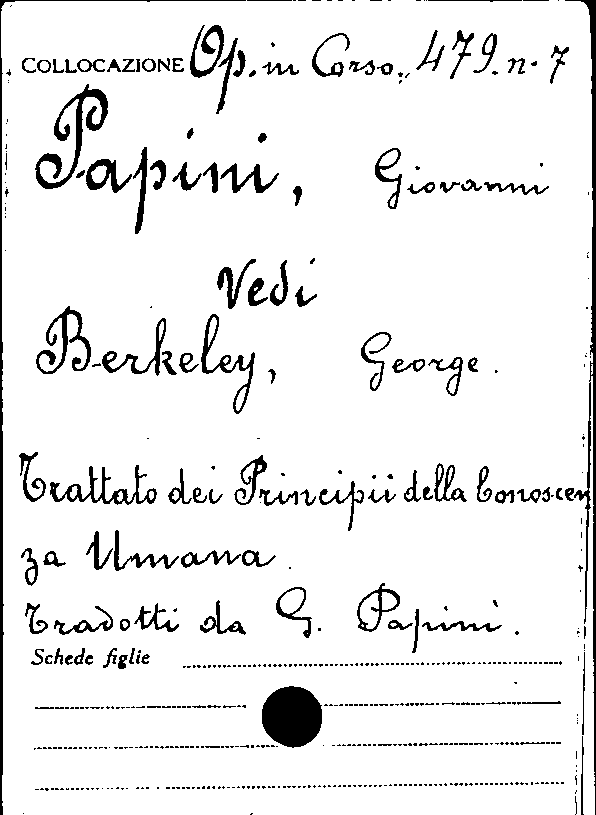 COLLOCAZIONE Op. in Corso. 479. n. 7
Papini, Giovanni
Vedi
Berkeley, George.
Trattato dei Principii della Conoscen
za Umana.
Tradotti da G. Papini.
Schede figlie